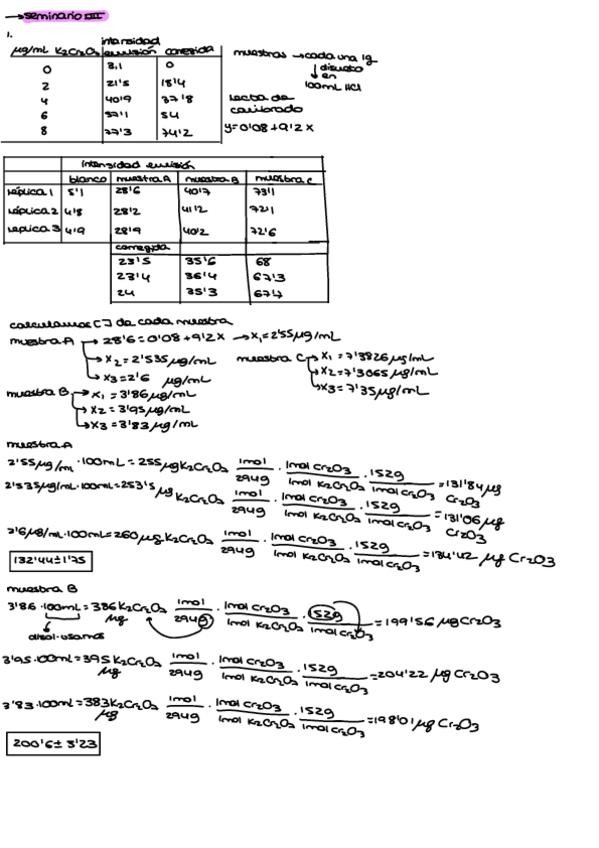 →seminario III
1.
μg/mL K2Cr2O7 intensidad emisión corregida
0 3,1 0
2 21'5 18'4
4 40'9 37'8
6 57'1 54
8 77'3 74'2
muestras → cada una 1g
↓ disuelto en
100mL HCl
recta de calibrado
y=0'08+9'2x
intensidad emisión
blanco muestra A muestra B muestra C
réplica 1 5'1 28'6 40'7 73'1
réplica 2 4'8 28'2 41'2 72'1
replica 3 4'9 28'9 40'2 72'6
corregida
23'5 35'6 68
23'4 36'4 67'3
24 35'3 67'7
calculamos [] de cada muestra
muestra A → 28'6=0'08+9'2x →x1=2'55μg/mL
→x2=2'535μg/mL
→x3=2'6 μg/mL
muestra B→x1=3'86μg/mL
→x2=3'95μg/mL
→x3=3'83μg/mL
muestra C→x1=7'3826μg/mL
→x2=7'3065μg/mL
→x3=7'35μg/mL
muestra A
2'55μg/mL·100mL=255μgK2Cr2O7 1mol/294g · 1mol Cr2O3/1mol K2Cr2O7 · 152g/1mol Cr2O3 =131'84μg Cr2O3
2'535μg/mL·100mL=253'5μg K2Cr2O7 1mol/294g · 1mol Cr2O3/1mol K2Cr2O7 · 152g/1mol Cr2O3 =131'06μg Cr2O3
2'6μg/mL·100mL=260μgK2Cr2O7 1mol/294g · 1mol Cr2O3/1mol K2Cr2O7 · 152g/1mol Cr2O3 =134'42 μg Cr2O3
132'44±1'75
muestra B
3'86·100mL=386K2Cr2O7 μg 1mol/294g · 1mol Cr2O3/1mol K2Cr2O7 · 152g/1mol Cr2O3 =199'56μgCr2O3
disol·usamos
3'95·100mL=395K2Cr2O7 μg 1mol/294g · 1mol Cr2O3/1mol K2Cr2O7 · 152g/1mol Cr2O3 =204'22 μg Cr2O3
3'83·100mL=383K2Cr2O7 μg 1mol/294g · 1mol Cr2O3/1mol K2Cr2O7 · 152g/1mol Cr2O3 =198'01μg Cr2O3
200'6±3'23